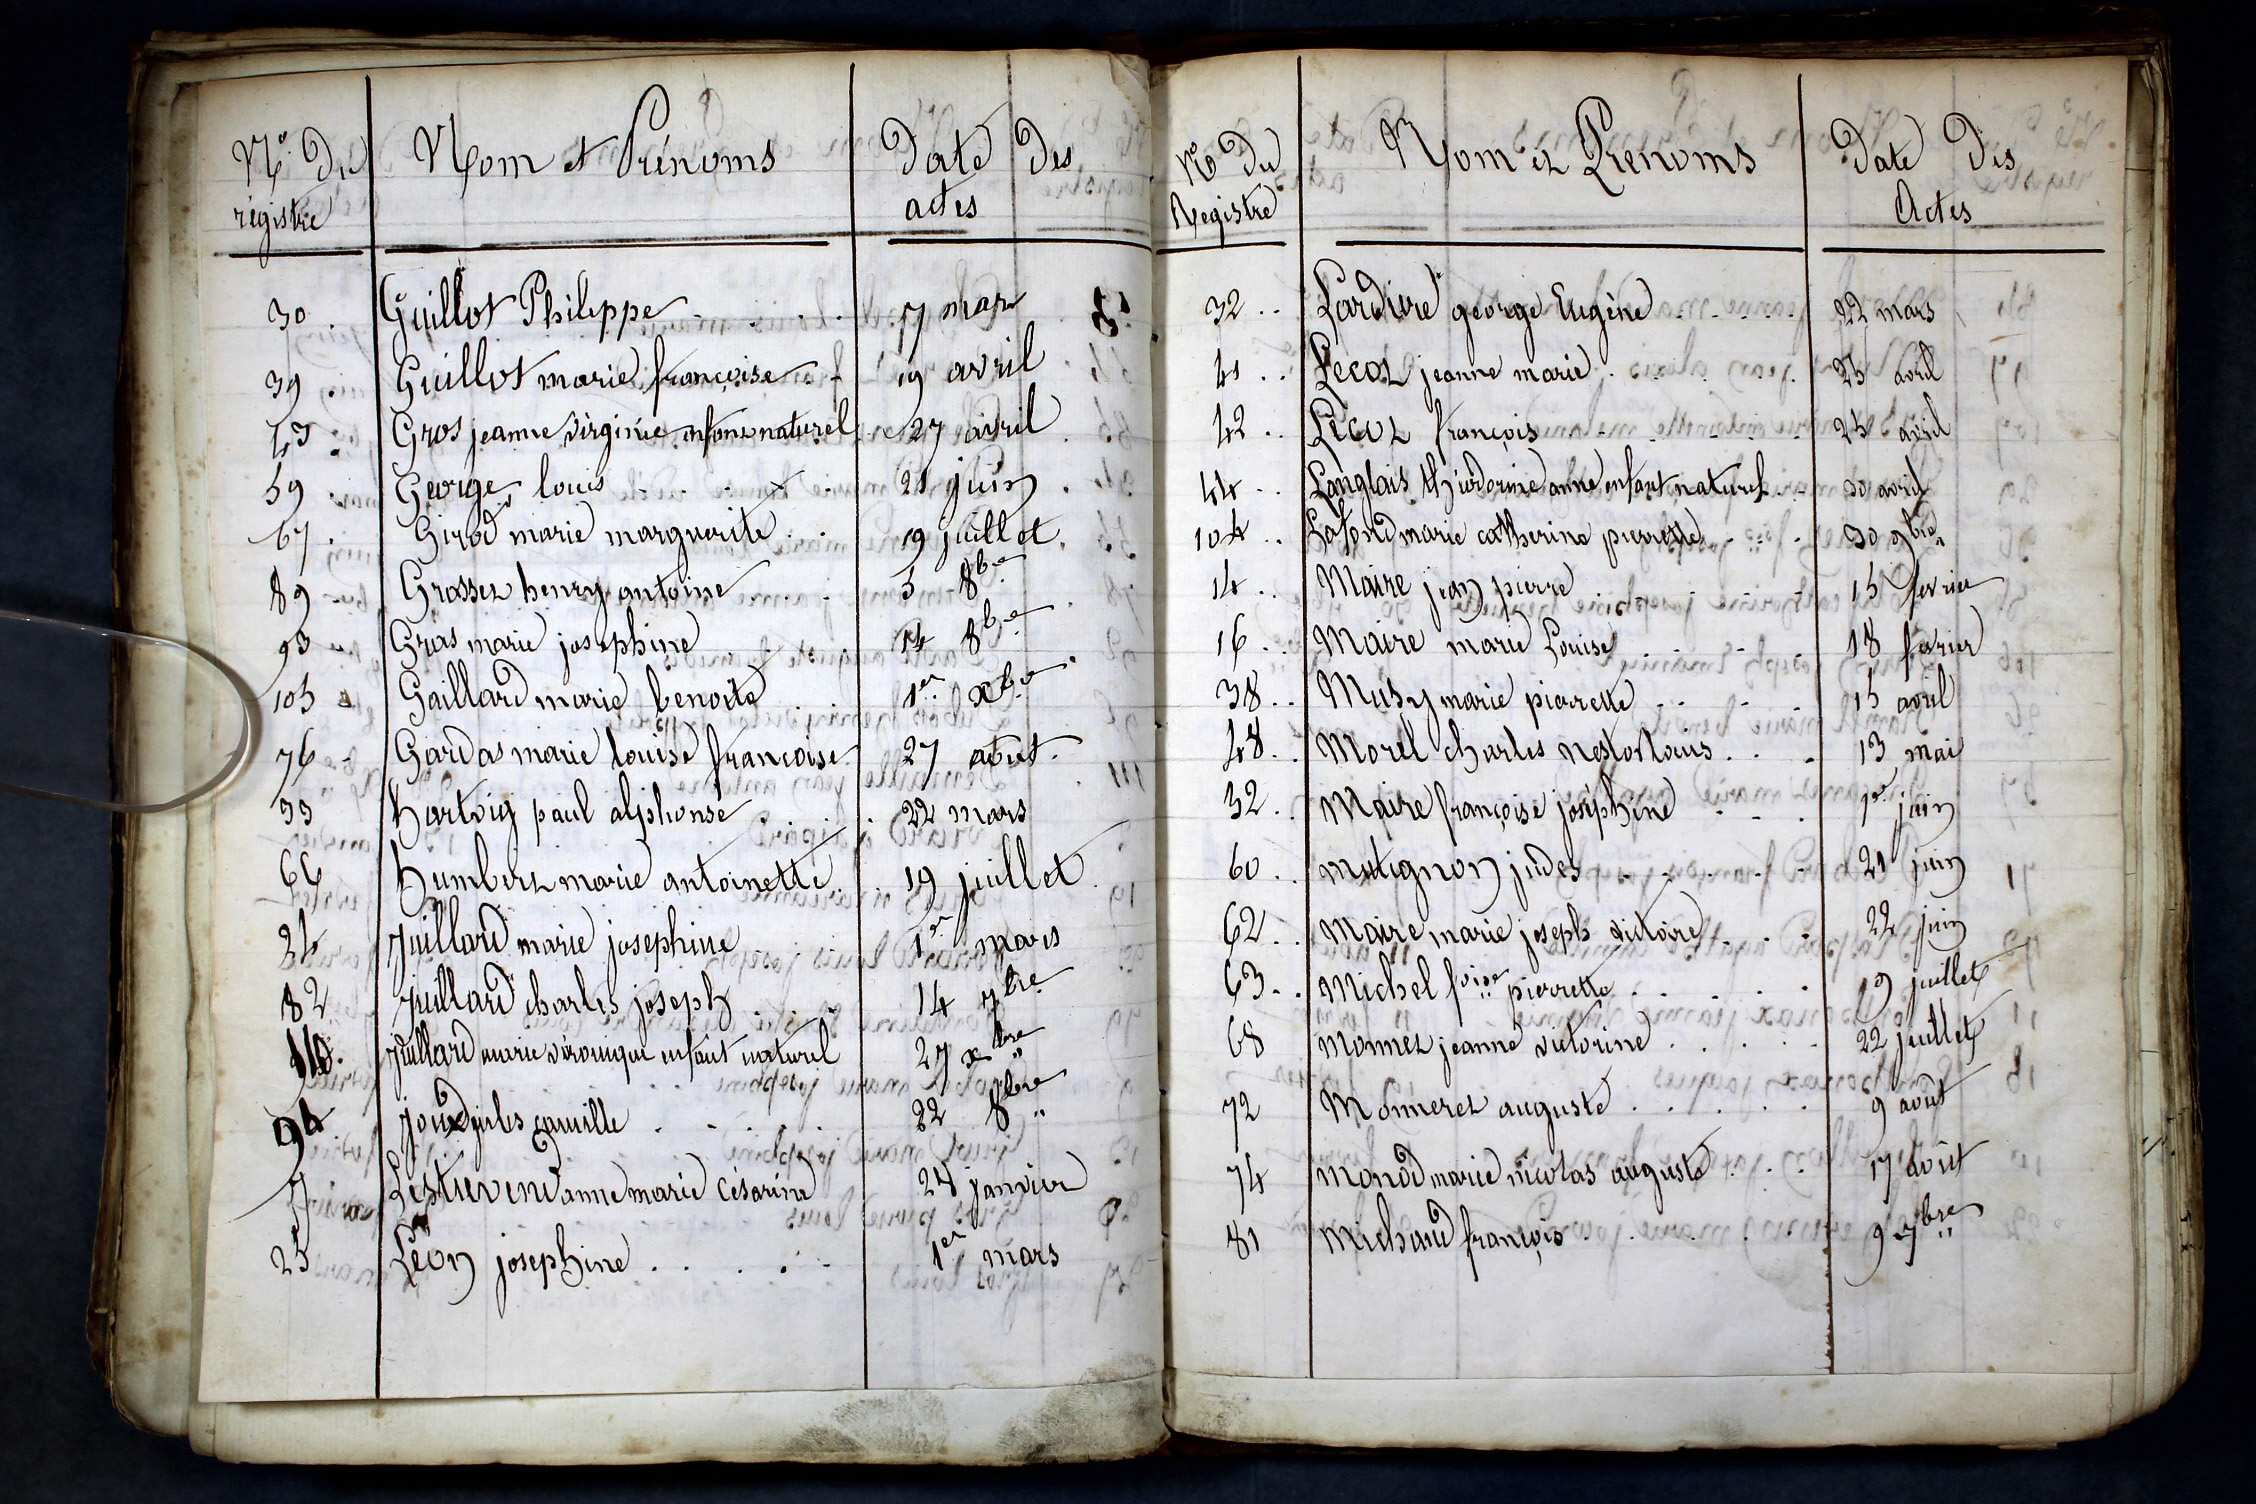 N.º Du Nom et Prénoms Date Des
régistre actes
30 . Guillot Philippe 17 mars
39 . Guillot marie françoise 19 avril
43 . Gros jeanne virginie enfant naturel 27 avril
59 George louis 21 juin
67 . Girod marie marguerite 19 juillet
89 Grosset henry antoine 5 8bre
93 Gras marie josephine 14 8bre
105 Gaillard marie benoite 1er xbre
76 Gardas marie louise françoise 27 aout
33 hartvig paul alphonse 22 mars
66 humbert marie antoinette 19 juillet
24 Juillard marie josephine 1er mars
82 Juillard charles joseph 14 7bre
110 Juillard marie véronique enfant naturel 27 xbre
94 joux jules camille 22 8bre
7 Lestrevend anne marie césarine 24 janvier
25 Léon josephine 1er mars
Nº Du Nom et Prenoms Date Des
Registre Actes
32 Lardivre george Eugène 22 mars
41 Lecoz jeanne marie 25 avril
42 Lecoz françois 25 avril
44 Langlais théodorine anne enfant naturel 30 avril
104 Lafond marie catherine pierrette 30 9bre
14 Maire jean pierre 15 fevrier
16 Maire marie Louise 18 fevrier
38 Musy marie pierrette 15 avril
48 Morel charles nestor louis 13 mai
52 Maire françoise joséphine 1er juin
60 matignon judes 21 juin
62 Maire marie joseph victoire 22 juin
63 Michel foise pierrette 19 juillet
68 Monnet jeanne victorine 22 juillet
72 Monneret auguste 9 août
74 Monod marie nicolas auguste 17 août
81 Michaud françois 9 7bre